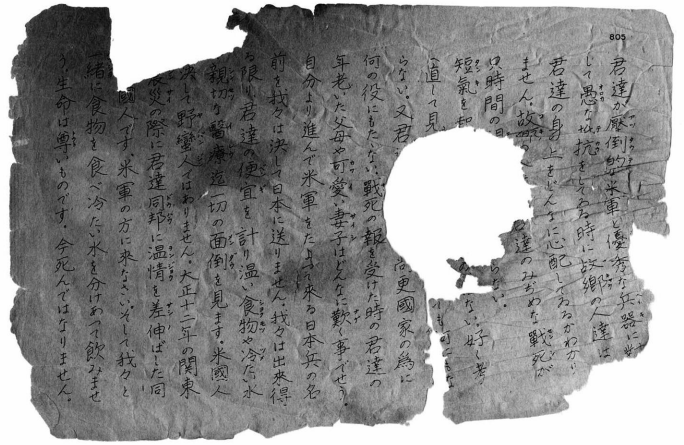 805
君達が壓倒的米軍と優秀な兵器に對
して愚な抵抗をしてゐる時に故鄉の人達は
君達の身上をどんなに心配してゐるかわかり
ません。故
只時間の
君達のみじめな戰死が
短氣を
らない。
直して見
ない。好
らない。又君
尚更國家の爲に
何の役にもたゝない戰死の報を受けた時の君達の
年老いた父母や可愛い妻子はどんなに歎く事でせう。
自分より進んで米軍をたよりに來る日本兵の名
前を我々は決して日本に送りません。我々は出來得
る限り君達の便宜を計り温い食物や冷たい水
親切な醫療迄一切の面倒を見ます。米國人
決して野蠻人ではありません。大正十二年の関東
災の際に君達同邦に温情を差伸ばした同
國人です。米軍の方に來なさい。そして我々と
一緒に食物を食べ冷たい水を分けあって飲みませ
う。生命は尊いものです。今死んではなりません。